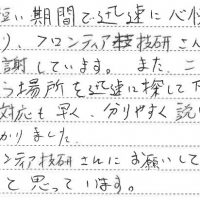 短い期間で迅速に心
り、フロンティア技研さん
謝しています。また、二
う場所を迅速に探して下
対応も早く、分りやすく説
かりました。
ンティア技研さんにお願いして
と思っています。